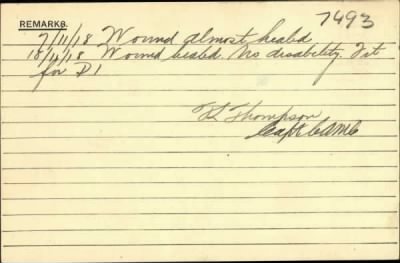 7493
REMARKS.
7/11/18 Wound almost healed
18/11/18 Wound healed. No disability. Fit
for D1
Thompson
Capt CAMC